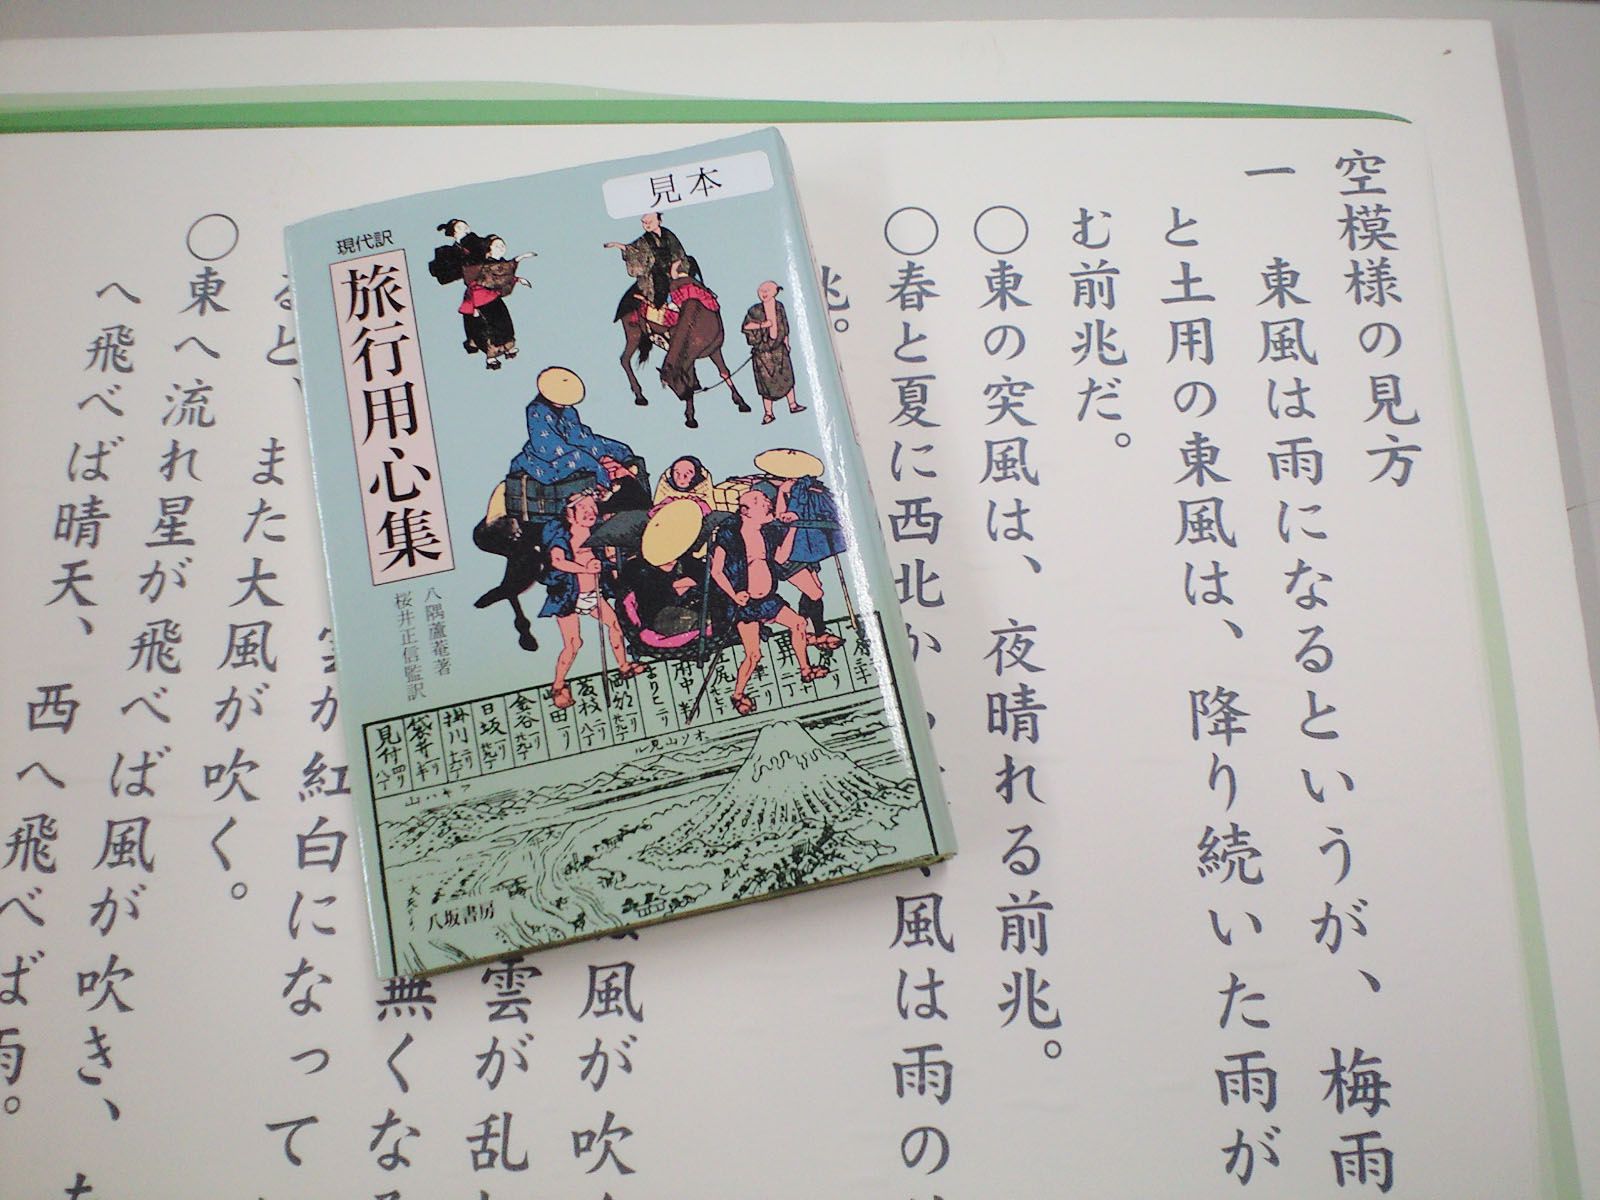 空模様の見方
一 東風は雨になるというが、梅雨
と土用の東風は、降り続いた雨が
む前兆だ。
○東の突風は、夜晴れる前兆。
○春と夏に西北か
風は雨の
兆。
風が吹
雲が乱
無くな
ると、
紅白になって
また大風が吹く。
○東へ流れ星が飛べば風が吹き、
へ飛べば晴天、西へ飛べば雨。
見本
現代訳
旅行用心集
八隅蘆菴著
桜井正信監訳
府中
岡部
金谷
日坂
掛川
袋井
見付
八坂書房